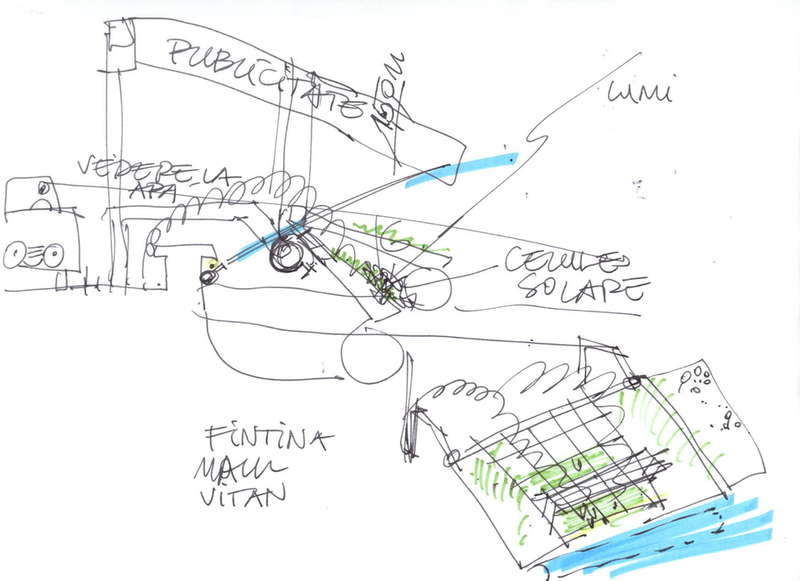 PUBLICITATE
LUMI
VEDERE LA
APA
CELULE
SOLARE
FINTINA
MALL
VITAN